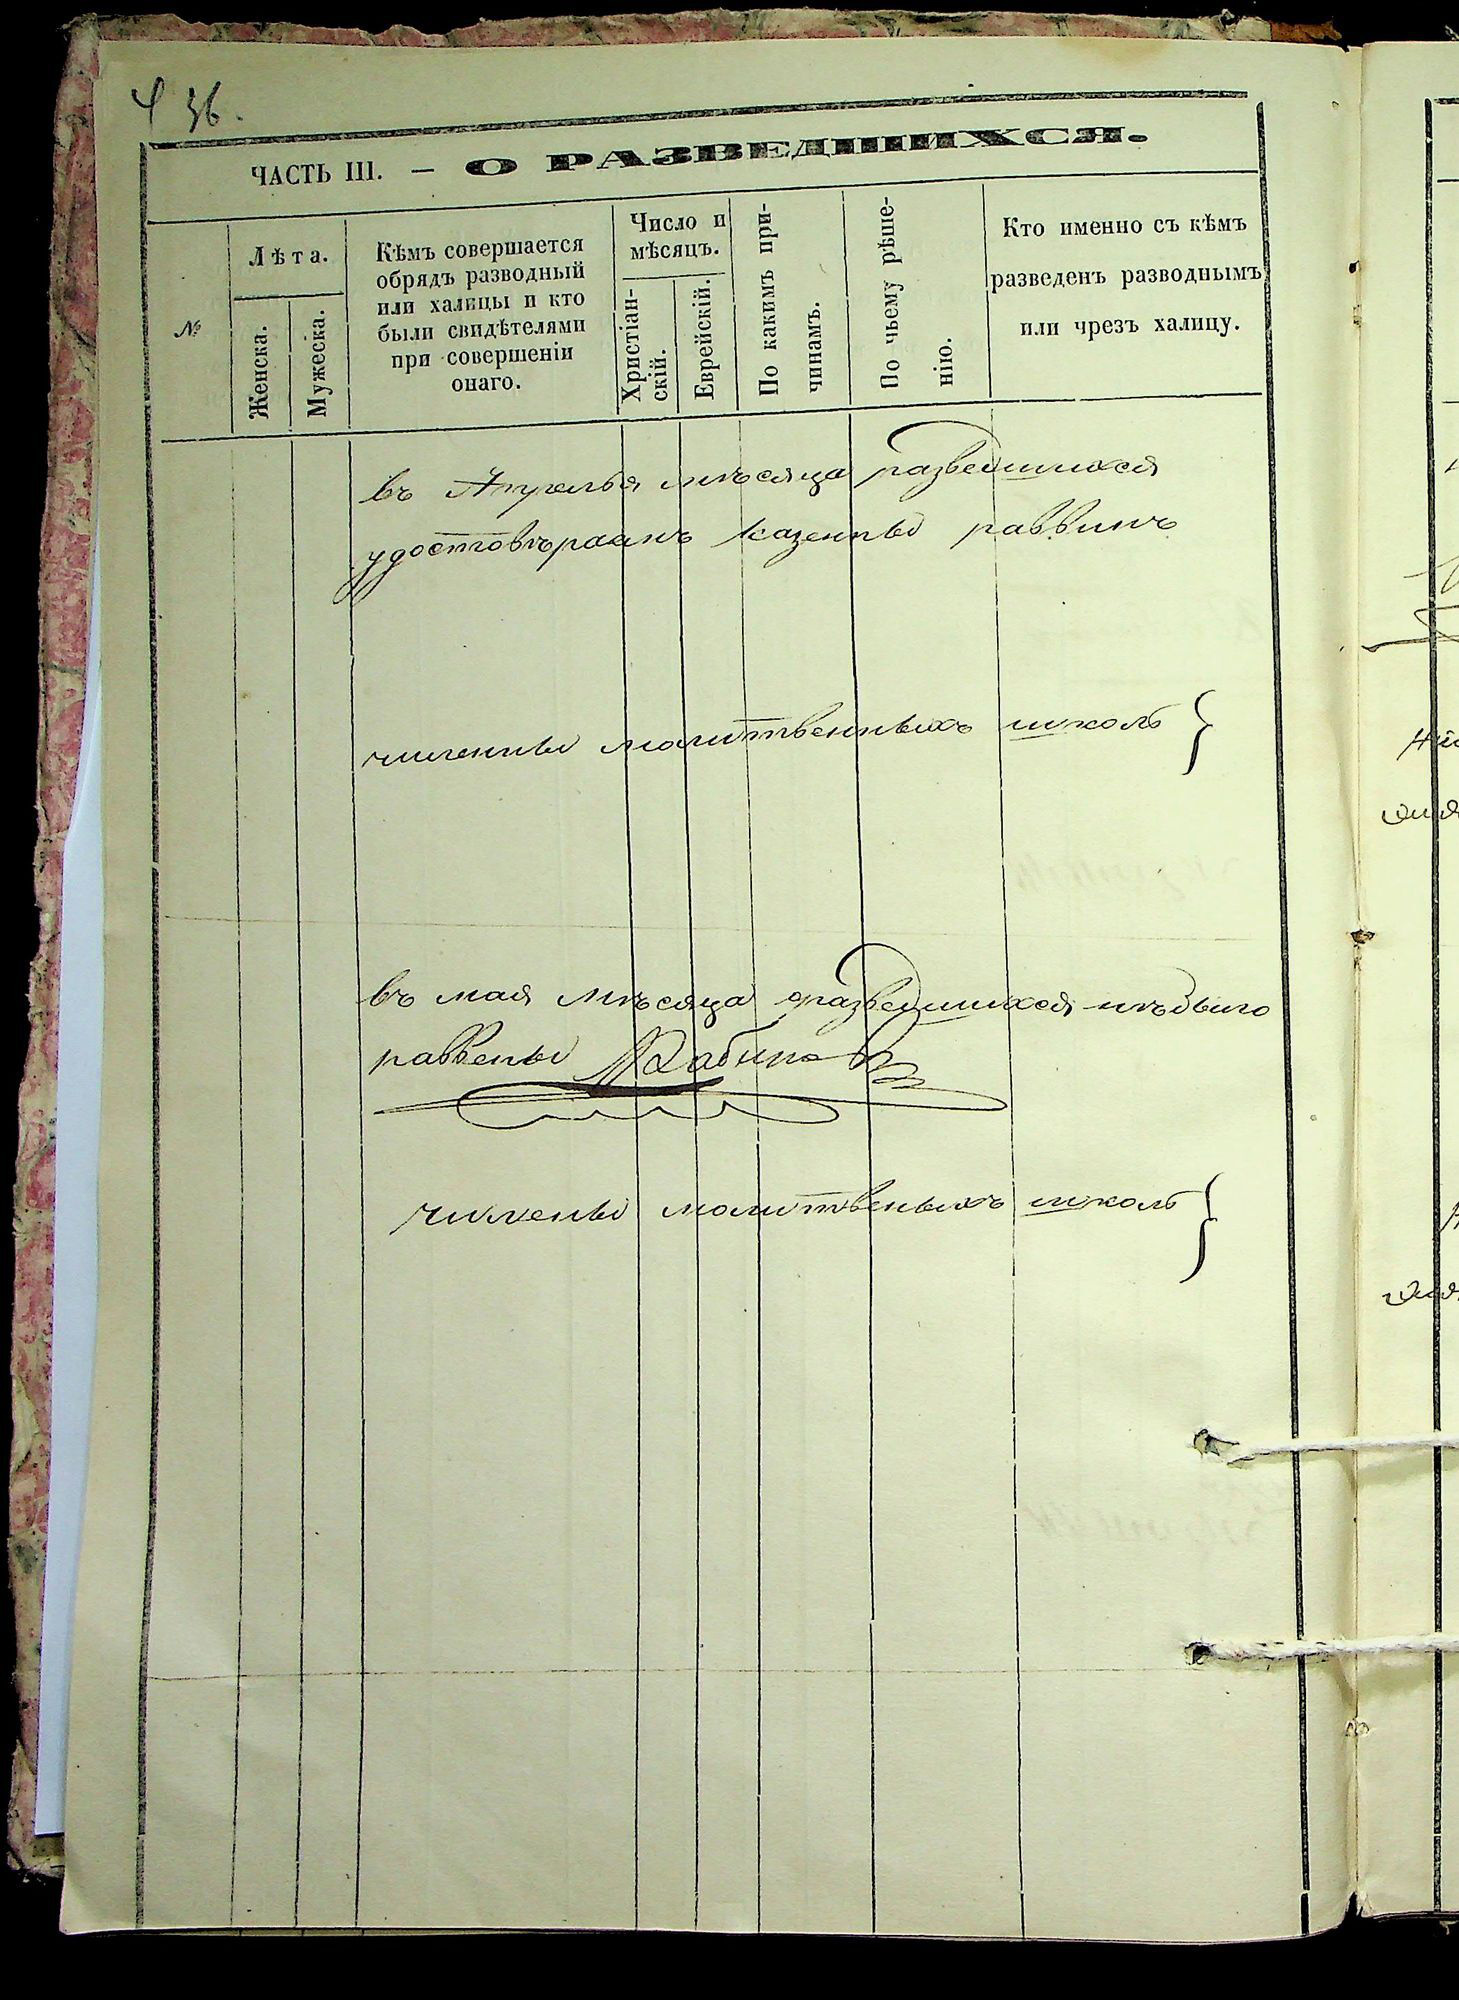 436.
ЧАСТЬ III. — О РАЗВЕДШИХСЯ.
№
Лѣта.
Женска.
Мужеска.
Кѣмъ совершается
обрядъ разводный
или халицы и кто
были свидѣтелями
при совершеніи
онаго.
Число и
мѣсяцъ.
Христіан-
скій.
Еврейскій.
По какимъ при-
чинамъ.
По чьему рѣше-
нію.
Кто именно съ кѣмъ
разведенъ разводнымъ
или чрезъ халицу.
въ Апрелья мѣсяца разведшихся
удостовѣраинъ казенны раввинъ
чиленны молитвенныхъ школъ }
въ мая мѣсяца разведшихся нѣбыло
раввены Рабинов
чилены молитвеныхъ школъ }